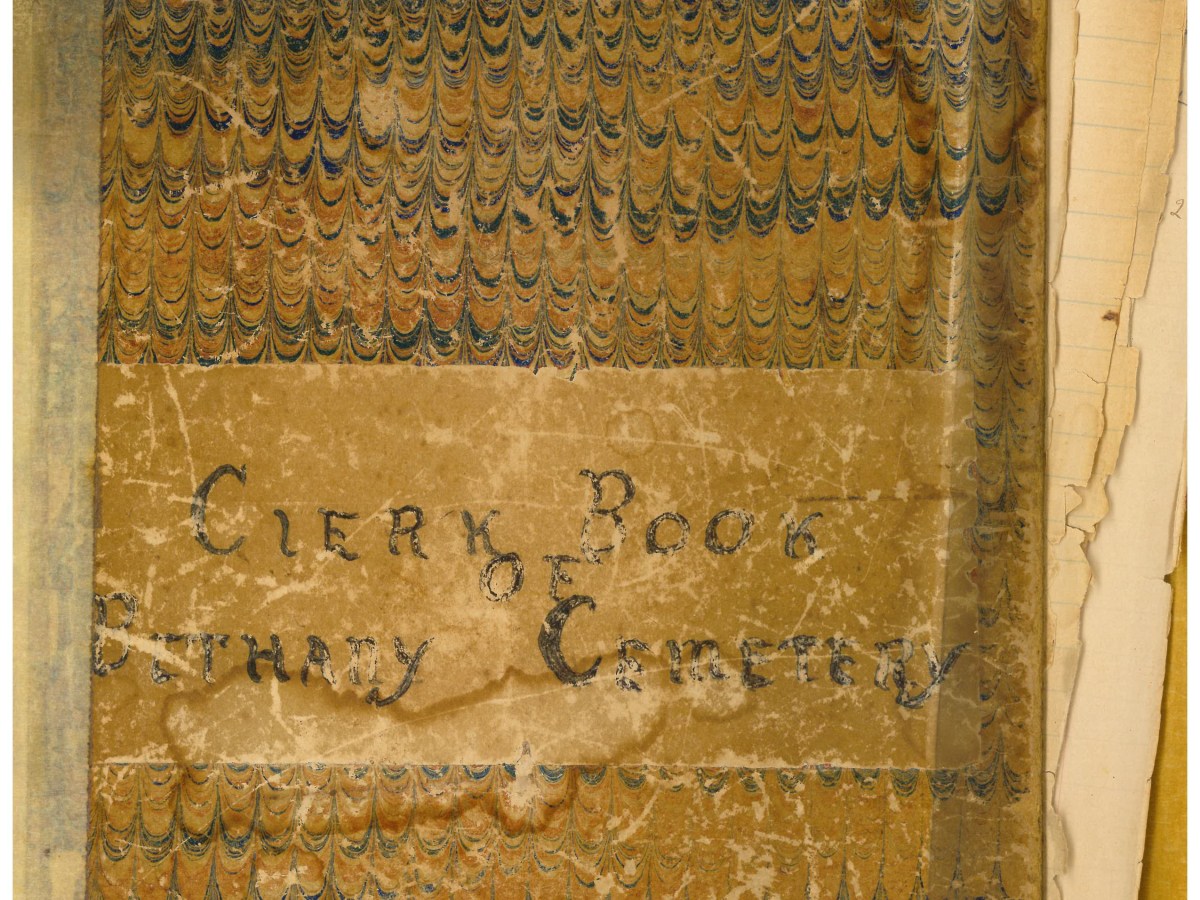 Clerk Book
of
Bethany Cemetery
2